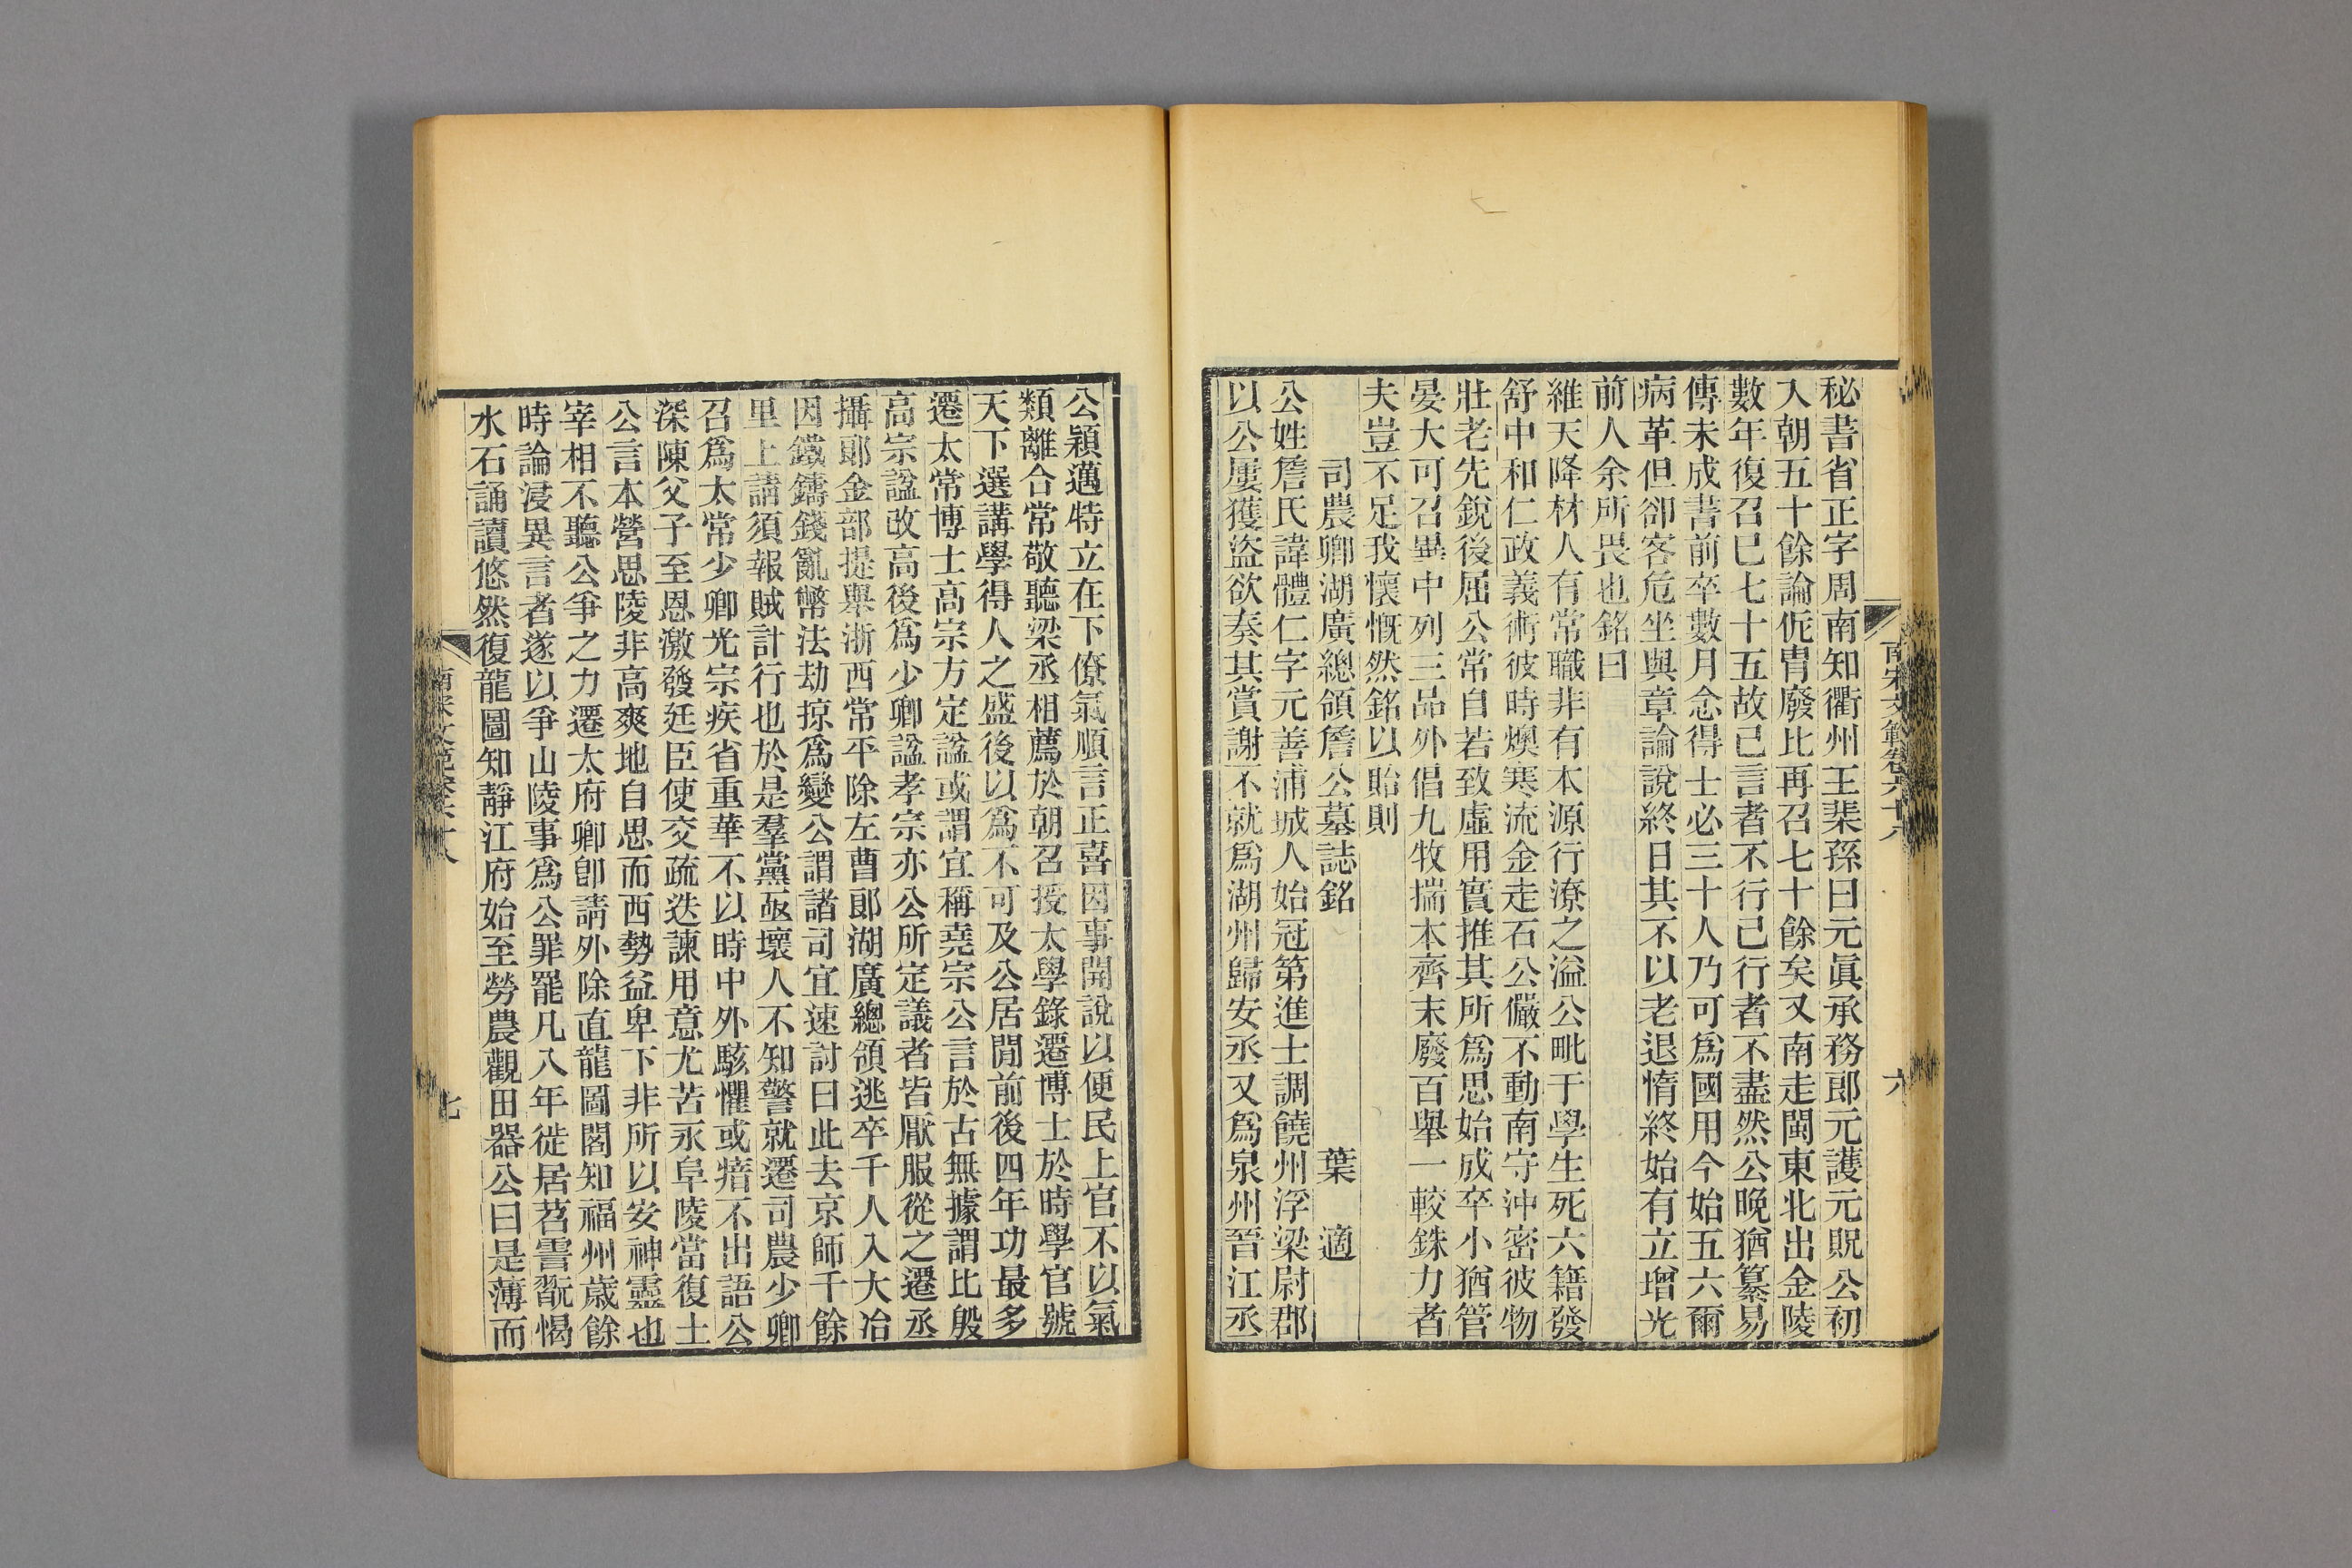 秘書省正字周南知衢州王棐孫曰元眞承務郎元護元貺公初
入朝五十餘論侂胄廢比再召七十餘矣又南走閩東北出金陵
數年復召已七十五故己言者不行己行者不盡然公晚猶纂易
傳未成書前卒數月念得士必三十人乃可爲國用今始五六爾
病革但卻客危坐與章論說終日其不以老退惰終始有立增光
前人余所畏也銘曰
維天降材人有常職非有本源行潦之溢公毗于學生死六籍發
舒中和仁政義術彼時燠寒流金走石公儼不動南守沖密彼物
壯老先銳後屈公常自若致虛用實推其所爲思始成卒小猶管
晏大可召畢中列三品外倡九牧揣本齊末廢百舉一較銖力者
夫豈不足我懷慨然銘以貽則
司農卿湖廣總領詹公墓誌銘 葉 適
公姓詹氏諱體仁字元善浦城人始冠第進士調饒州浮梁尉郡
以公屢獲盜欲奏其賞謝不就爲湖州歸安丞又爲泉州晉江丞
南宋文範卷六十八 六
公穎邁特立在下僚氣順言正喜因事開說以便民上官不以氣
類離合常敬聽梁丞相薦於朝召授太學錄遷博士於時學官號
天下選講學得人之盛後以爲不可及公居閒前後四年功最多
遷太常博士高宗方定諡或謂宜稱堯宗公言於古無據謂比殷
高宗諡改高後爲少卿諡孝宗亦公所定議者皆厭服從之遷丞
攝郎金部提舉浙西常平除左曹郎湖廣總領逃卒千人入大冶
因鐵鑄錢亂幣法劫掠爲變公謂諸司宜速討曰此去京師千餘
里上請須報賊計行也於是羣黨亟壞人不知警就遷司農少卿
召爲太常少卿光宗疾省重華不以時中外駭懼或瘖不出語公
深陳父子至恩激發廷臣使交疏迭諫用意尤苦永阜陵當復土
公言本營思陵非高爽地自思而西勢益卑下非所以安神靈也
宰相不聽公爭之力遷太府卿卽請外除直龍圖閣知福州歲餘
時論浸異言者遂以爭山陵事爲公罪罷凡八年徙居苕霅翫愒
水石誦讀悠然復龍圖知靜江府始至勞農觀田器公曰是薄而
南宋文範卷六十八 七